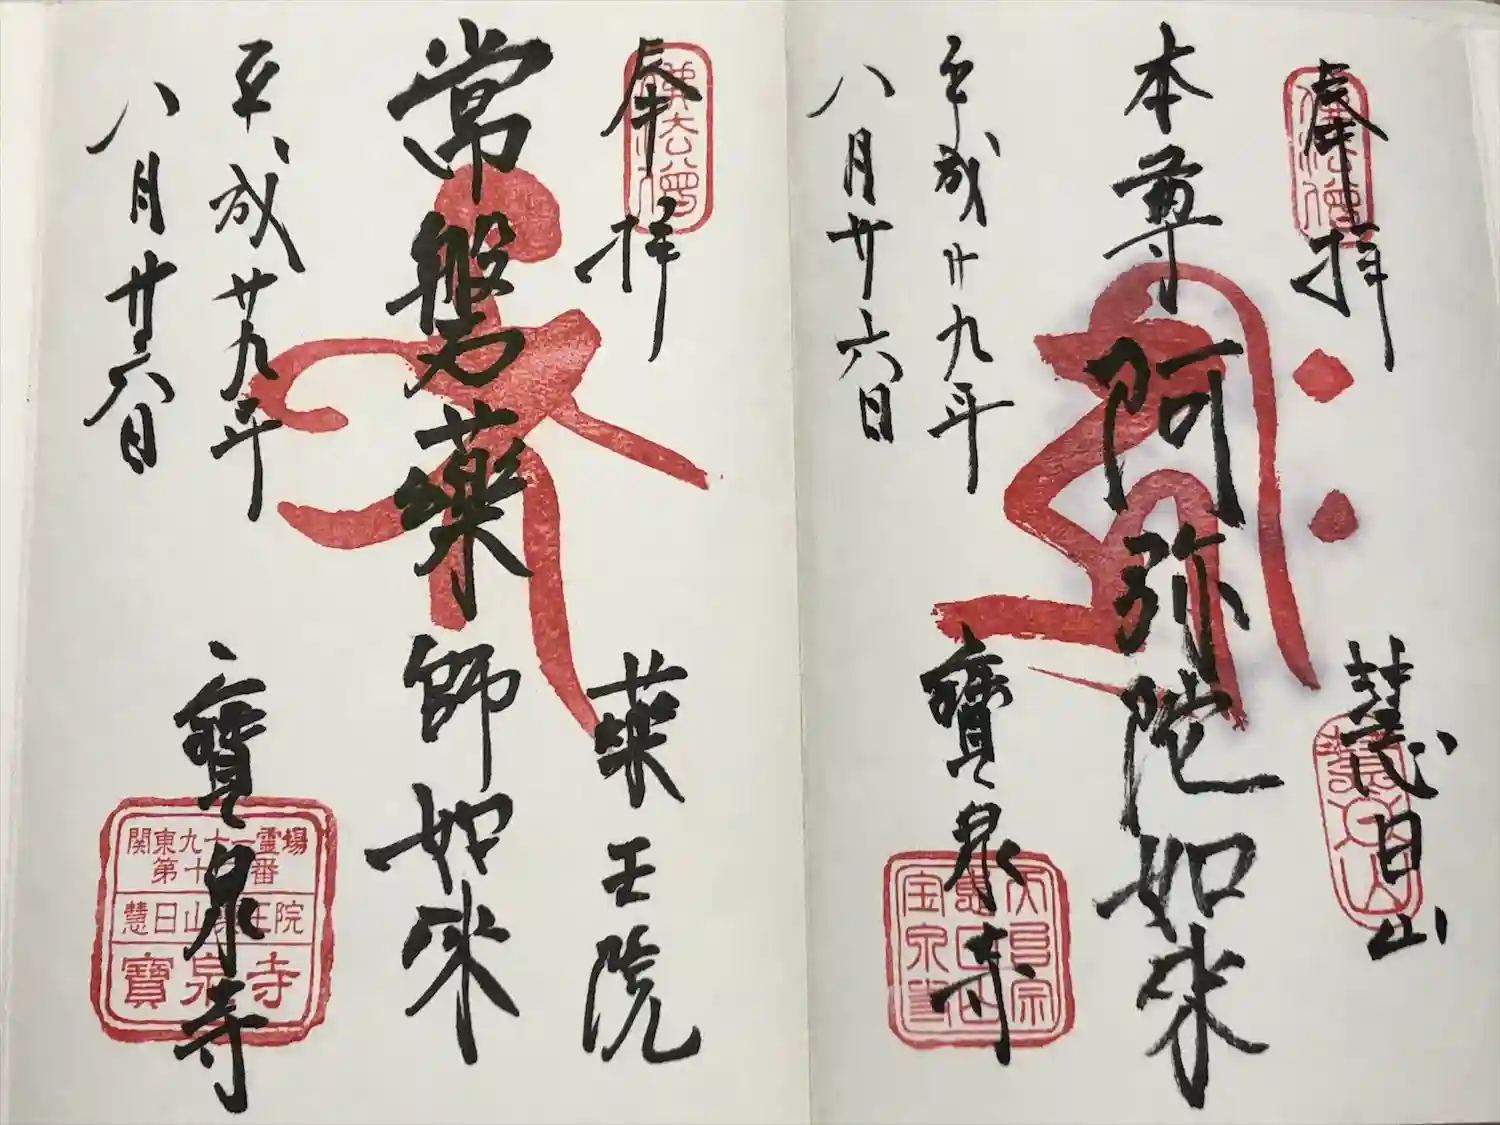 奉拝
慧日山
本尊
阿弥陀如来
平成廿九年
八月廿六日
寶泉寺
奉拝
薬王院
常磐薬師如来
平成廿九年
八月廿六日
寶泉寺
関東九十一霊場
第十 番
慧日山 王院
寶泉寺